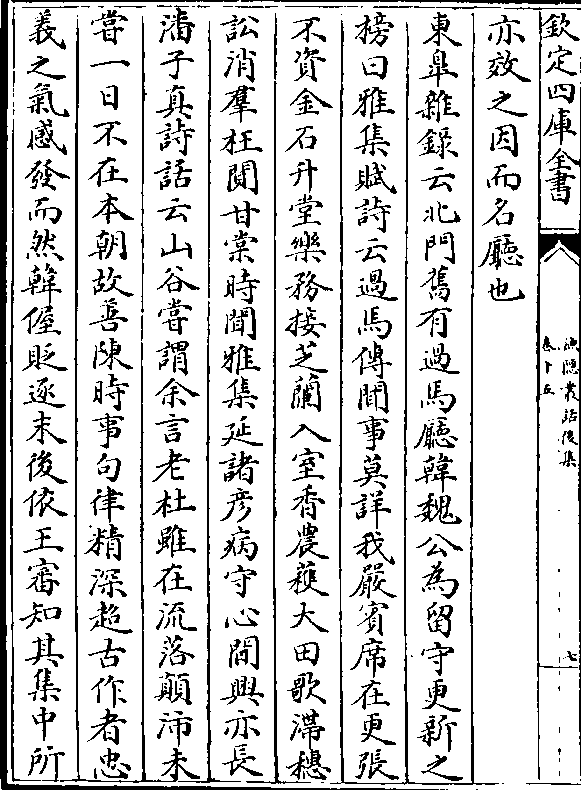 欽定四庫全書
漁隱叢話後集
卷十五
七
亦效之因而名廳也
東臯雜錄云北門舊有過馬廳韓魏公為留守更新之
榜曰雅集賦詩云過馬傳聞事莫詳我嚴賓席在更張
不資金石升堂樂務接芝蘭入室香農穫大田歌滯穗
訟消羣枉閱甘棠時聞雅集延諸彦病守心間興亦長
潘子真詩話云山谷嘗謂余言老杜雖在流落顛沛未
嘗一日不在本朝故善陳時事句律精深超古作者忠
義之氣感發而然韓偓貶逐末後依王審知其集中所